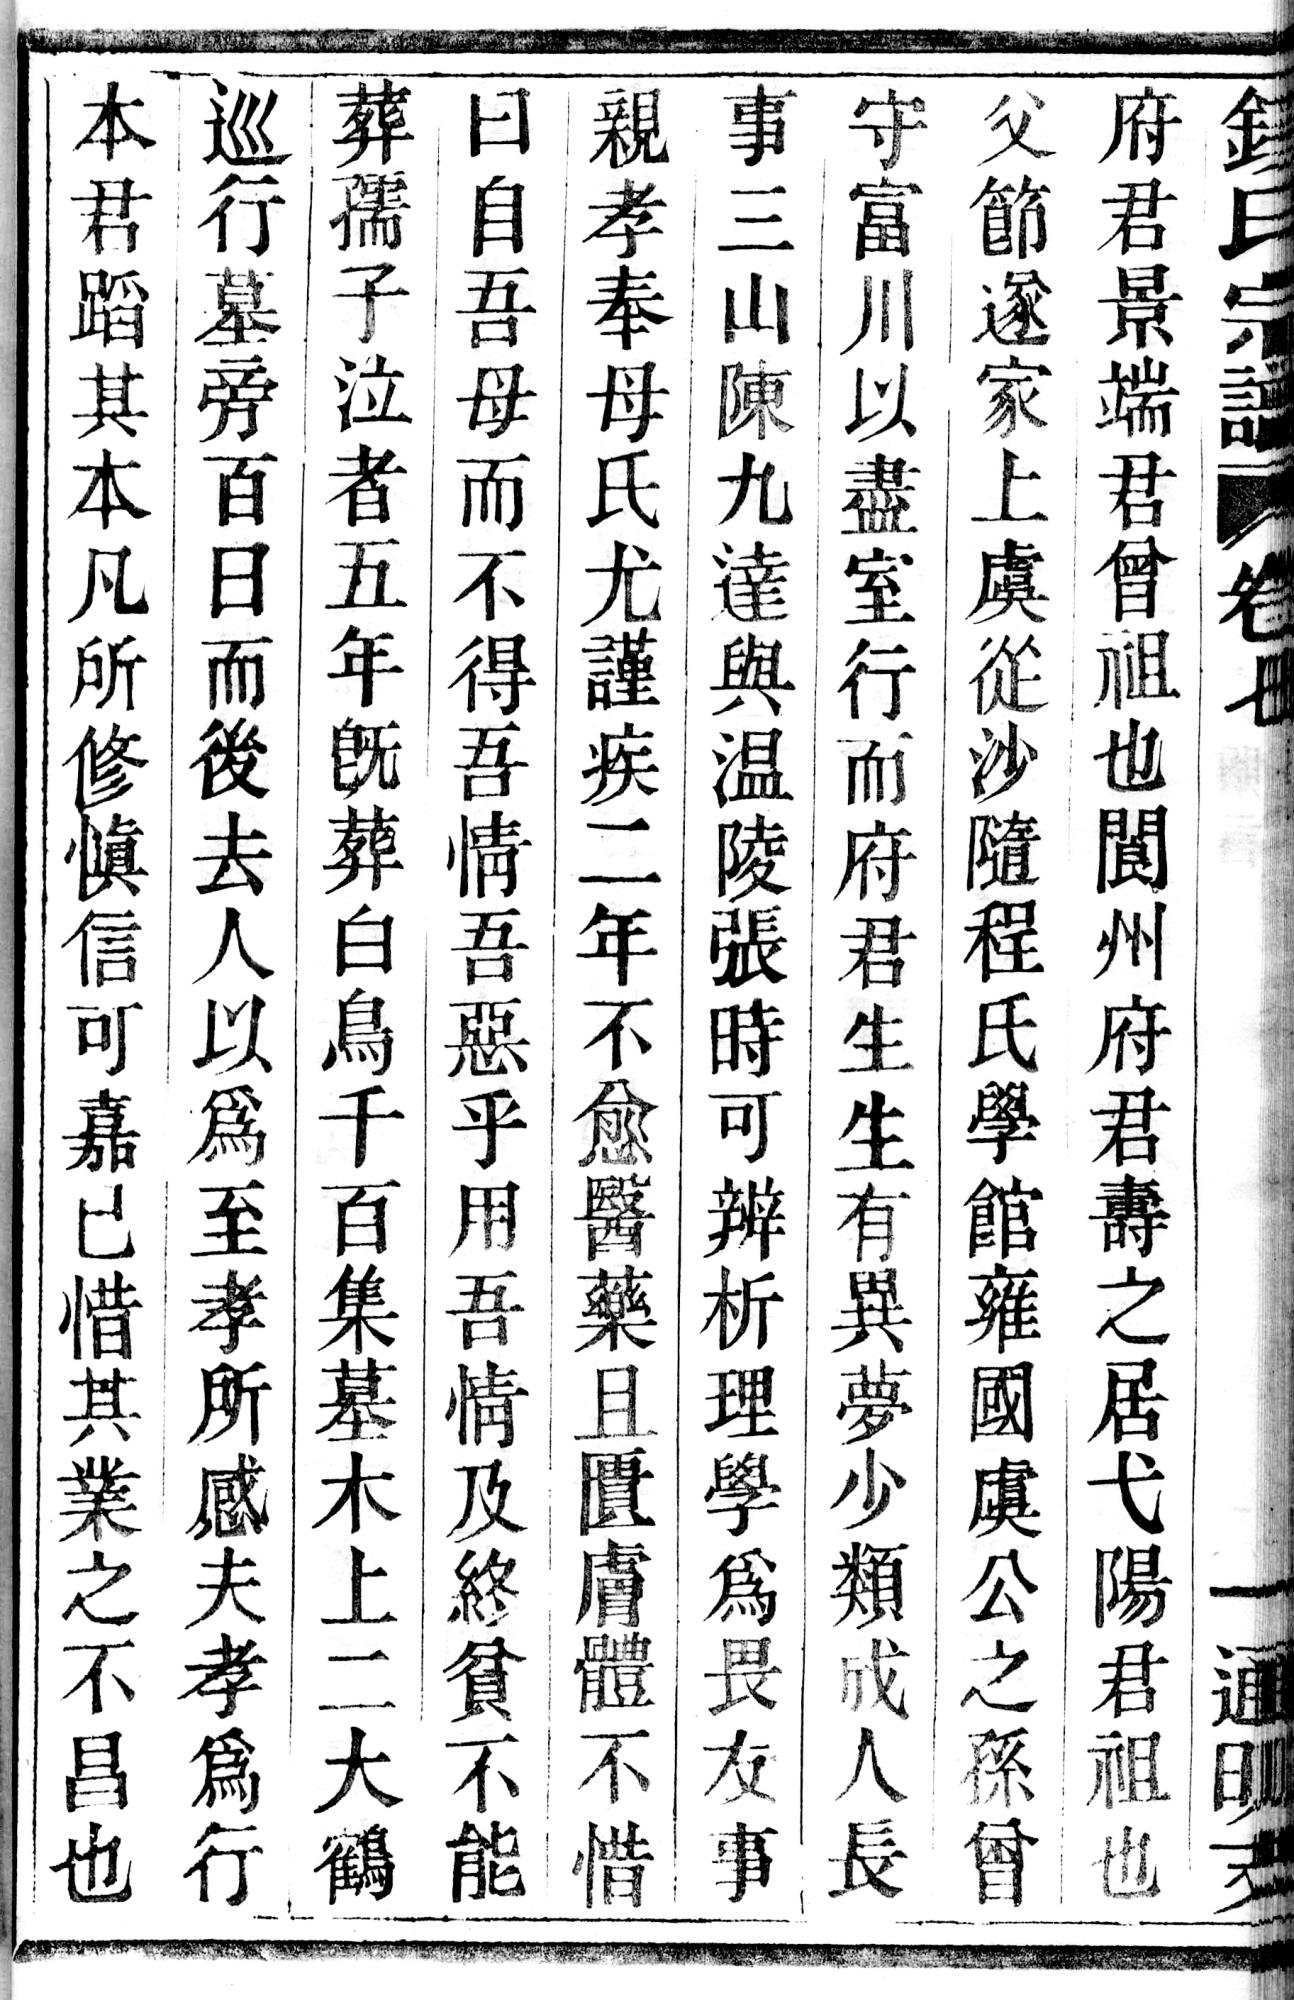 氏宗譜 卷 一
府君景端君曾祖也閬州府君壽之居弋陽君祖也
父節遂家上虞從沙隨程氏學館雍國虞公之孫曾
守富川以盡室行而府君生生有異夢少類成人長
事三山陳九達與温陵張時可辨析理學爲畏友事
親孝奉母氏尤謹疾二年不愈醫藥且匱膚體不惜
曰自吾母而不得吾情吾惡乎用吾情及終貧不能
葬孺子泣者五年旣葬白鳥千百集墓木上二大鶴
巡行墓旁百日而後去人以爲至孝所感夫孝爲行
本君蹈其本凡所修愼信可嘉已惜其業之不昌也